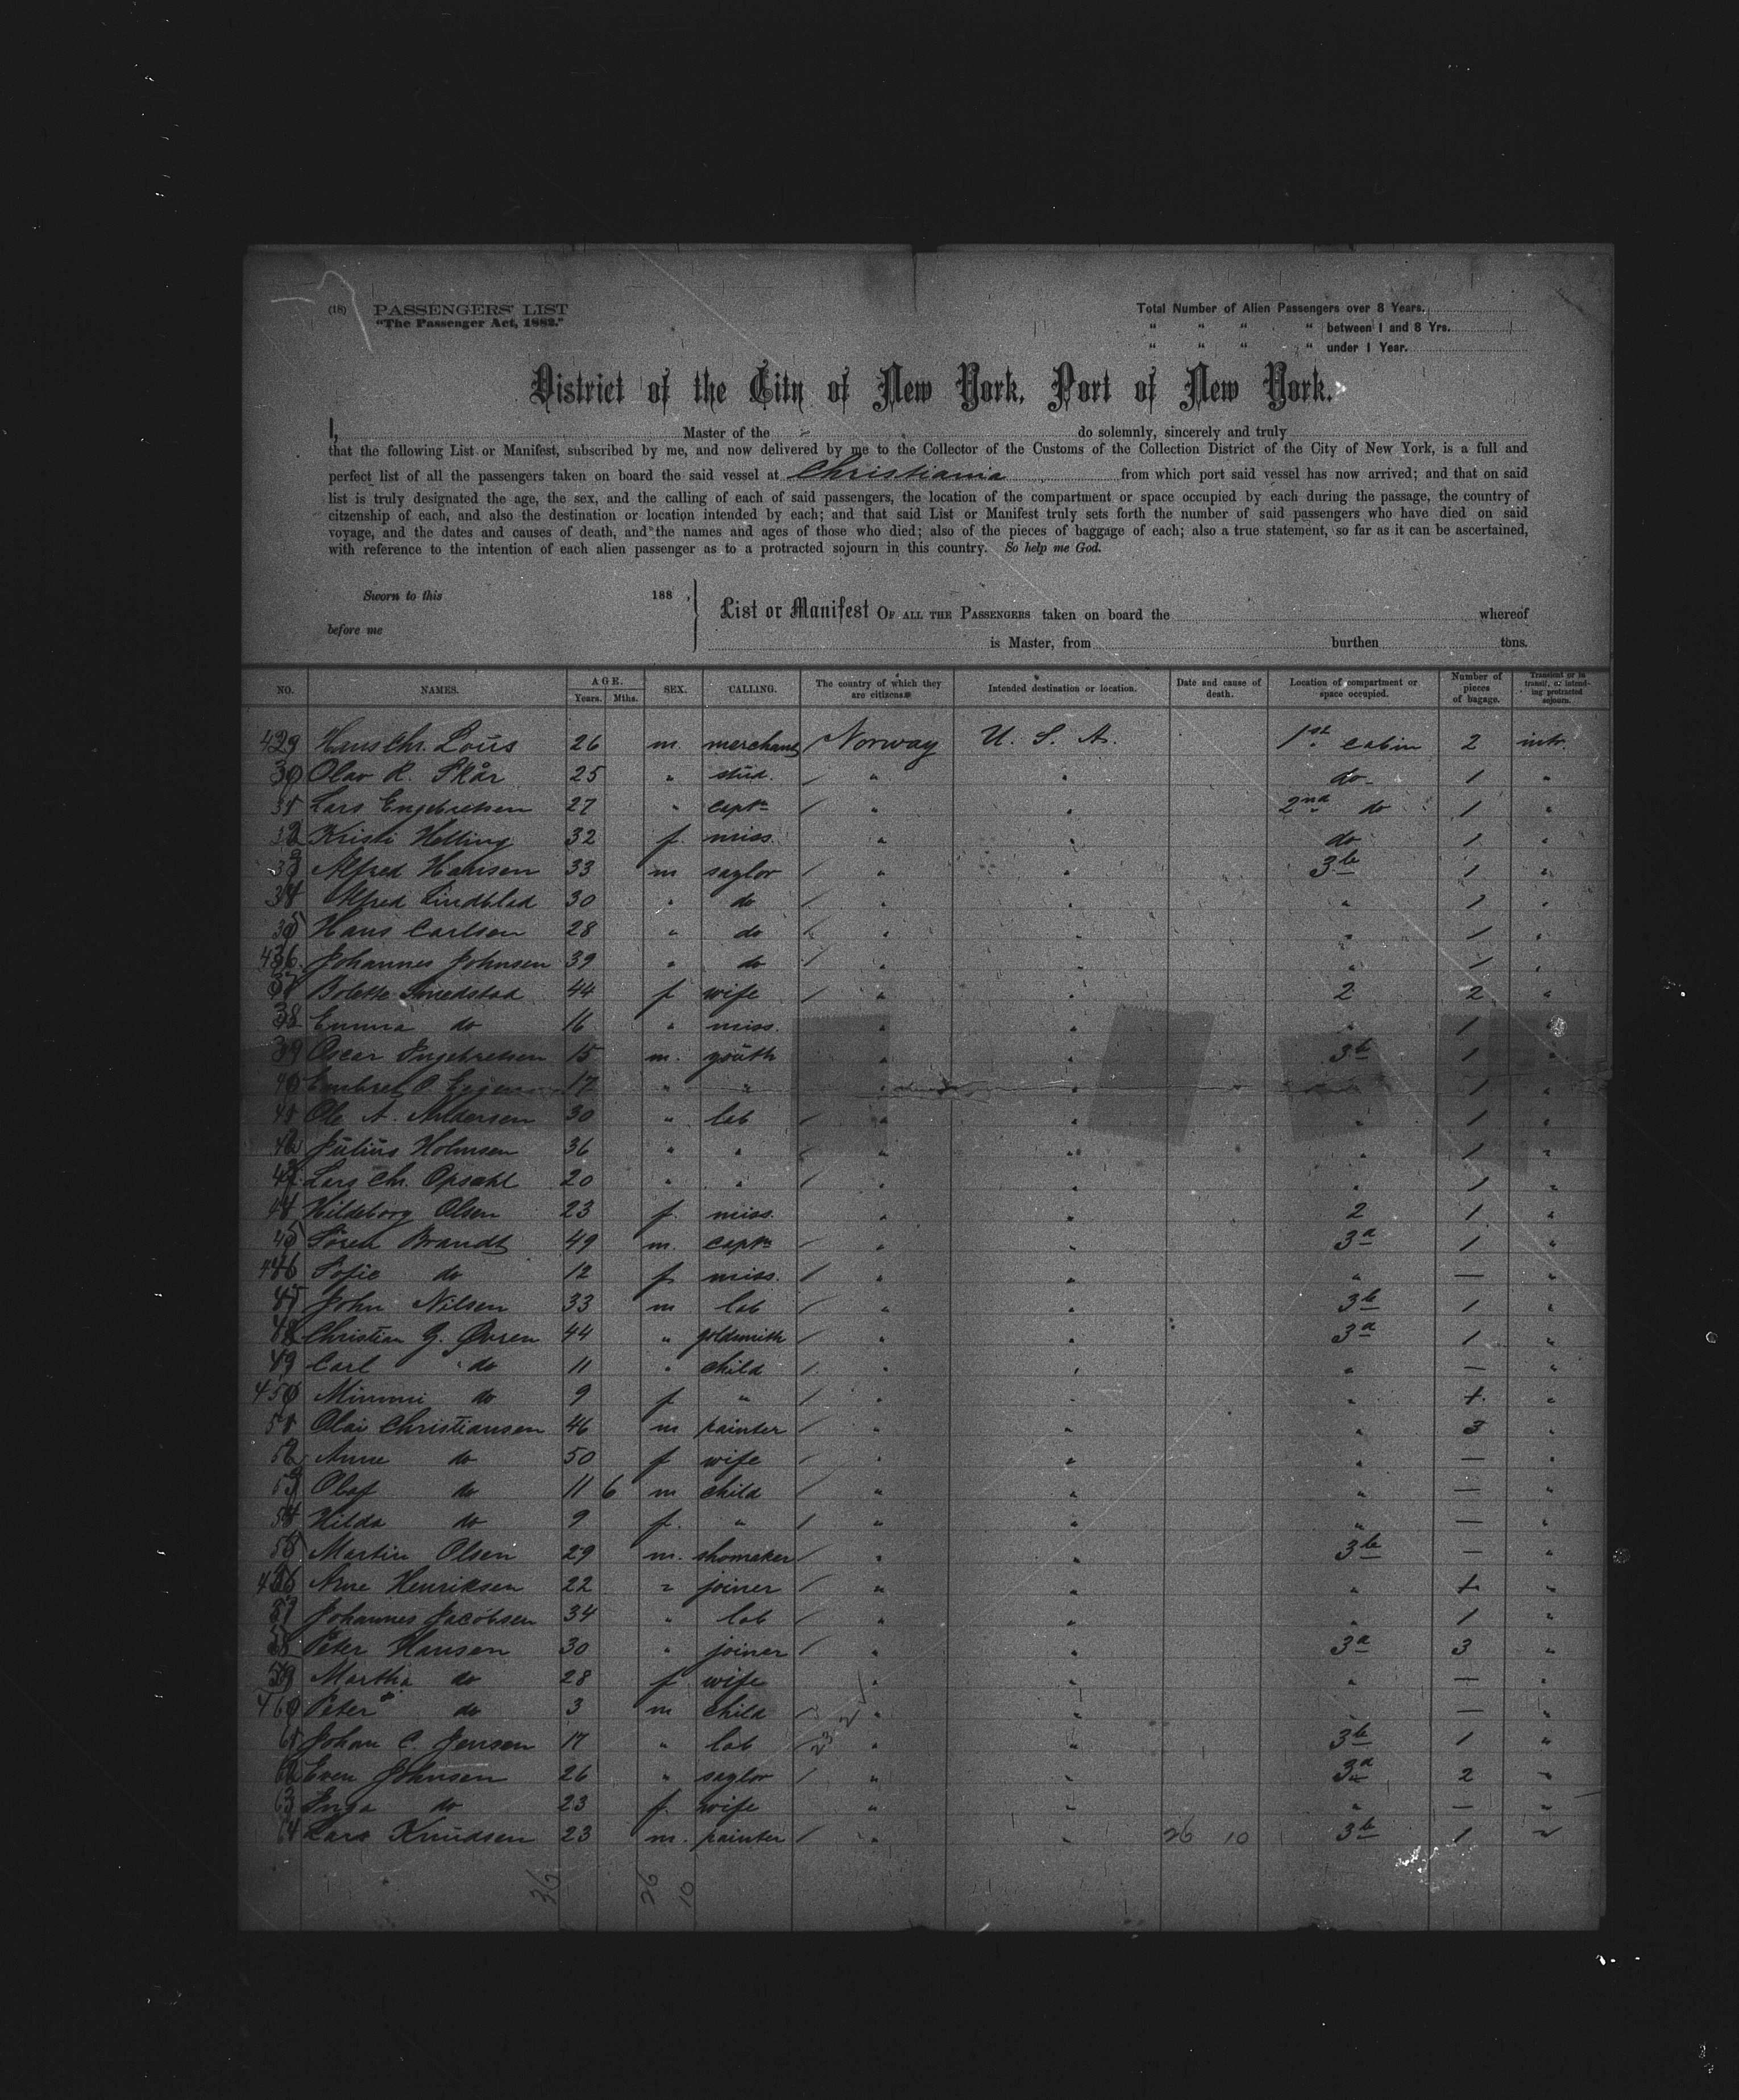 (18) PASSENGERS' LIST
"The Passenger Act, 1882."
Total Number of Alien Passengers over 8 Years.
" " " " between 1 and 8 Yrs.
" " " " under 1 Year.
District of the City of New York, Port of New York.
I, Master of the do solemnly, sincerely and truly
that the following List or Manifest, subscribed by me, and now delivered by me to the Collector of the Customs of the Collection District of the City of New York, is a full and
perfect list of all the passengers taken on board the said vessel at Christiania from which port said vessel has now arrived; and that on said
list is truly designated the age, the sex, and the calling of each of said passengers, the location of the compartment or space occupied by each during the passage, the country of
citzenship of each, and also the destination or location intended by each; and that said List or Manifest truly sets forth the number of said passengers who have died on said
voyage, and the dates and causes of death, and the names and ages of those who died; also of the pieces of baggage of each; also a true statement, so far as it can be ascertained,
with reference to the intention of each alien passenger as to a protracted sojourn in this country. So help me God.
Sworn to this 188 ,
before me
List or Manifest OF ALL THE PASSENGERS taken on board the whereof
is Master, from burthen tons.
NO. NAMES. AGE. Years. Mths. SEX. CALLING. The country of which they are citizens. Intended destination or location. Date and cause of death. Location of compartment or space occupied. Number of pieces of bagage. Transient or in transit, or intending protracted sojourn.
429 Hans Chr. Loüs 26 m. merchant Norway U. S. A. 1st cabin 2 intr.
30 Olav R. Skår 25 " stüd. " " do 1 "
31 Lars Engebretsen 27 " captn " " 2nd do 1 "
32 Kristi Helling 32 f. miss. " " do 1 "
33 Alfred Hansen 33 m saylor " " 3b 1 "
34 Alfred Lindblad 30 " do " " " 1 "
35 Hans Carlson 28 " do " " " 1 "
436 Johannes Johnsen 39 " do " " " 1 "
37 Bolette Smedstad 44 f wife " " 2 2 "
38 Emma do 16 " miss. " " " 1 "
39 Oscar Ingebretsen 15 m. yoüth " " 3b 1 "
40 Embret O 17 " " " " 1 "
41 Ole A. Andersen 30 " lab " " " 1 "
42 Jülius Holmsen 36 " " " " " 1 "
43 Lars Chr. Opsahl 20 " " " " " 1 "
44 Hildeborg Olsen 23 f. miss. " " 2 1 "
45 Sören Brandt 49 m. captn " " 3a 1 "
446 Sofie do 12 f. miss. " " " — "
47 John Nilsen 33 m lab " " 3b 1 "
48 Christian G. Øvren 44 " goldsmith " " 3a 1 "
49 Carl do 11 " child " " " — "
450 Mimmi do 9 f " " " " "
51 Olai Christiansen 46 m painter " " " 3 "
52 Anne do 50 f wife " " " — "
53 Olaf do 11 6 m child " " " — "
54 Hilda do 9 f. " " " " — "
55 Martin Olsen 29 m. shomaker " " 3b — "
456 Arne Henriksen 22 " joiner " " " "
57 Johannes Jacobsen 34 " lab " " " 1 "
58 Peter Hansen 30 " joiner " " 3a 3 "
59 Martha do 28 f wife " " " — "
460 Peter do 3 m child " " " — "
61 Johan C. Jensen 17 " lab " " 3b 1 "
62 Even Johnsen 26 " saylor " " 3a 2 "
63 Inga do 23 f. wife " " " — "
64 Lars Knüdsen 23 m. painter " " 26 10 3b 1 "
36 26 10